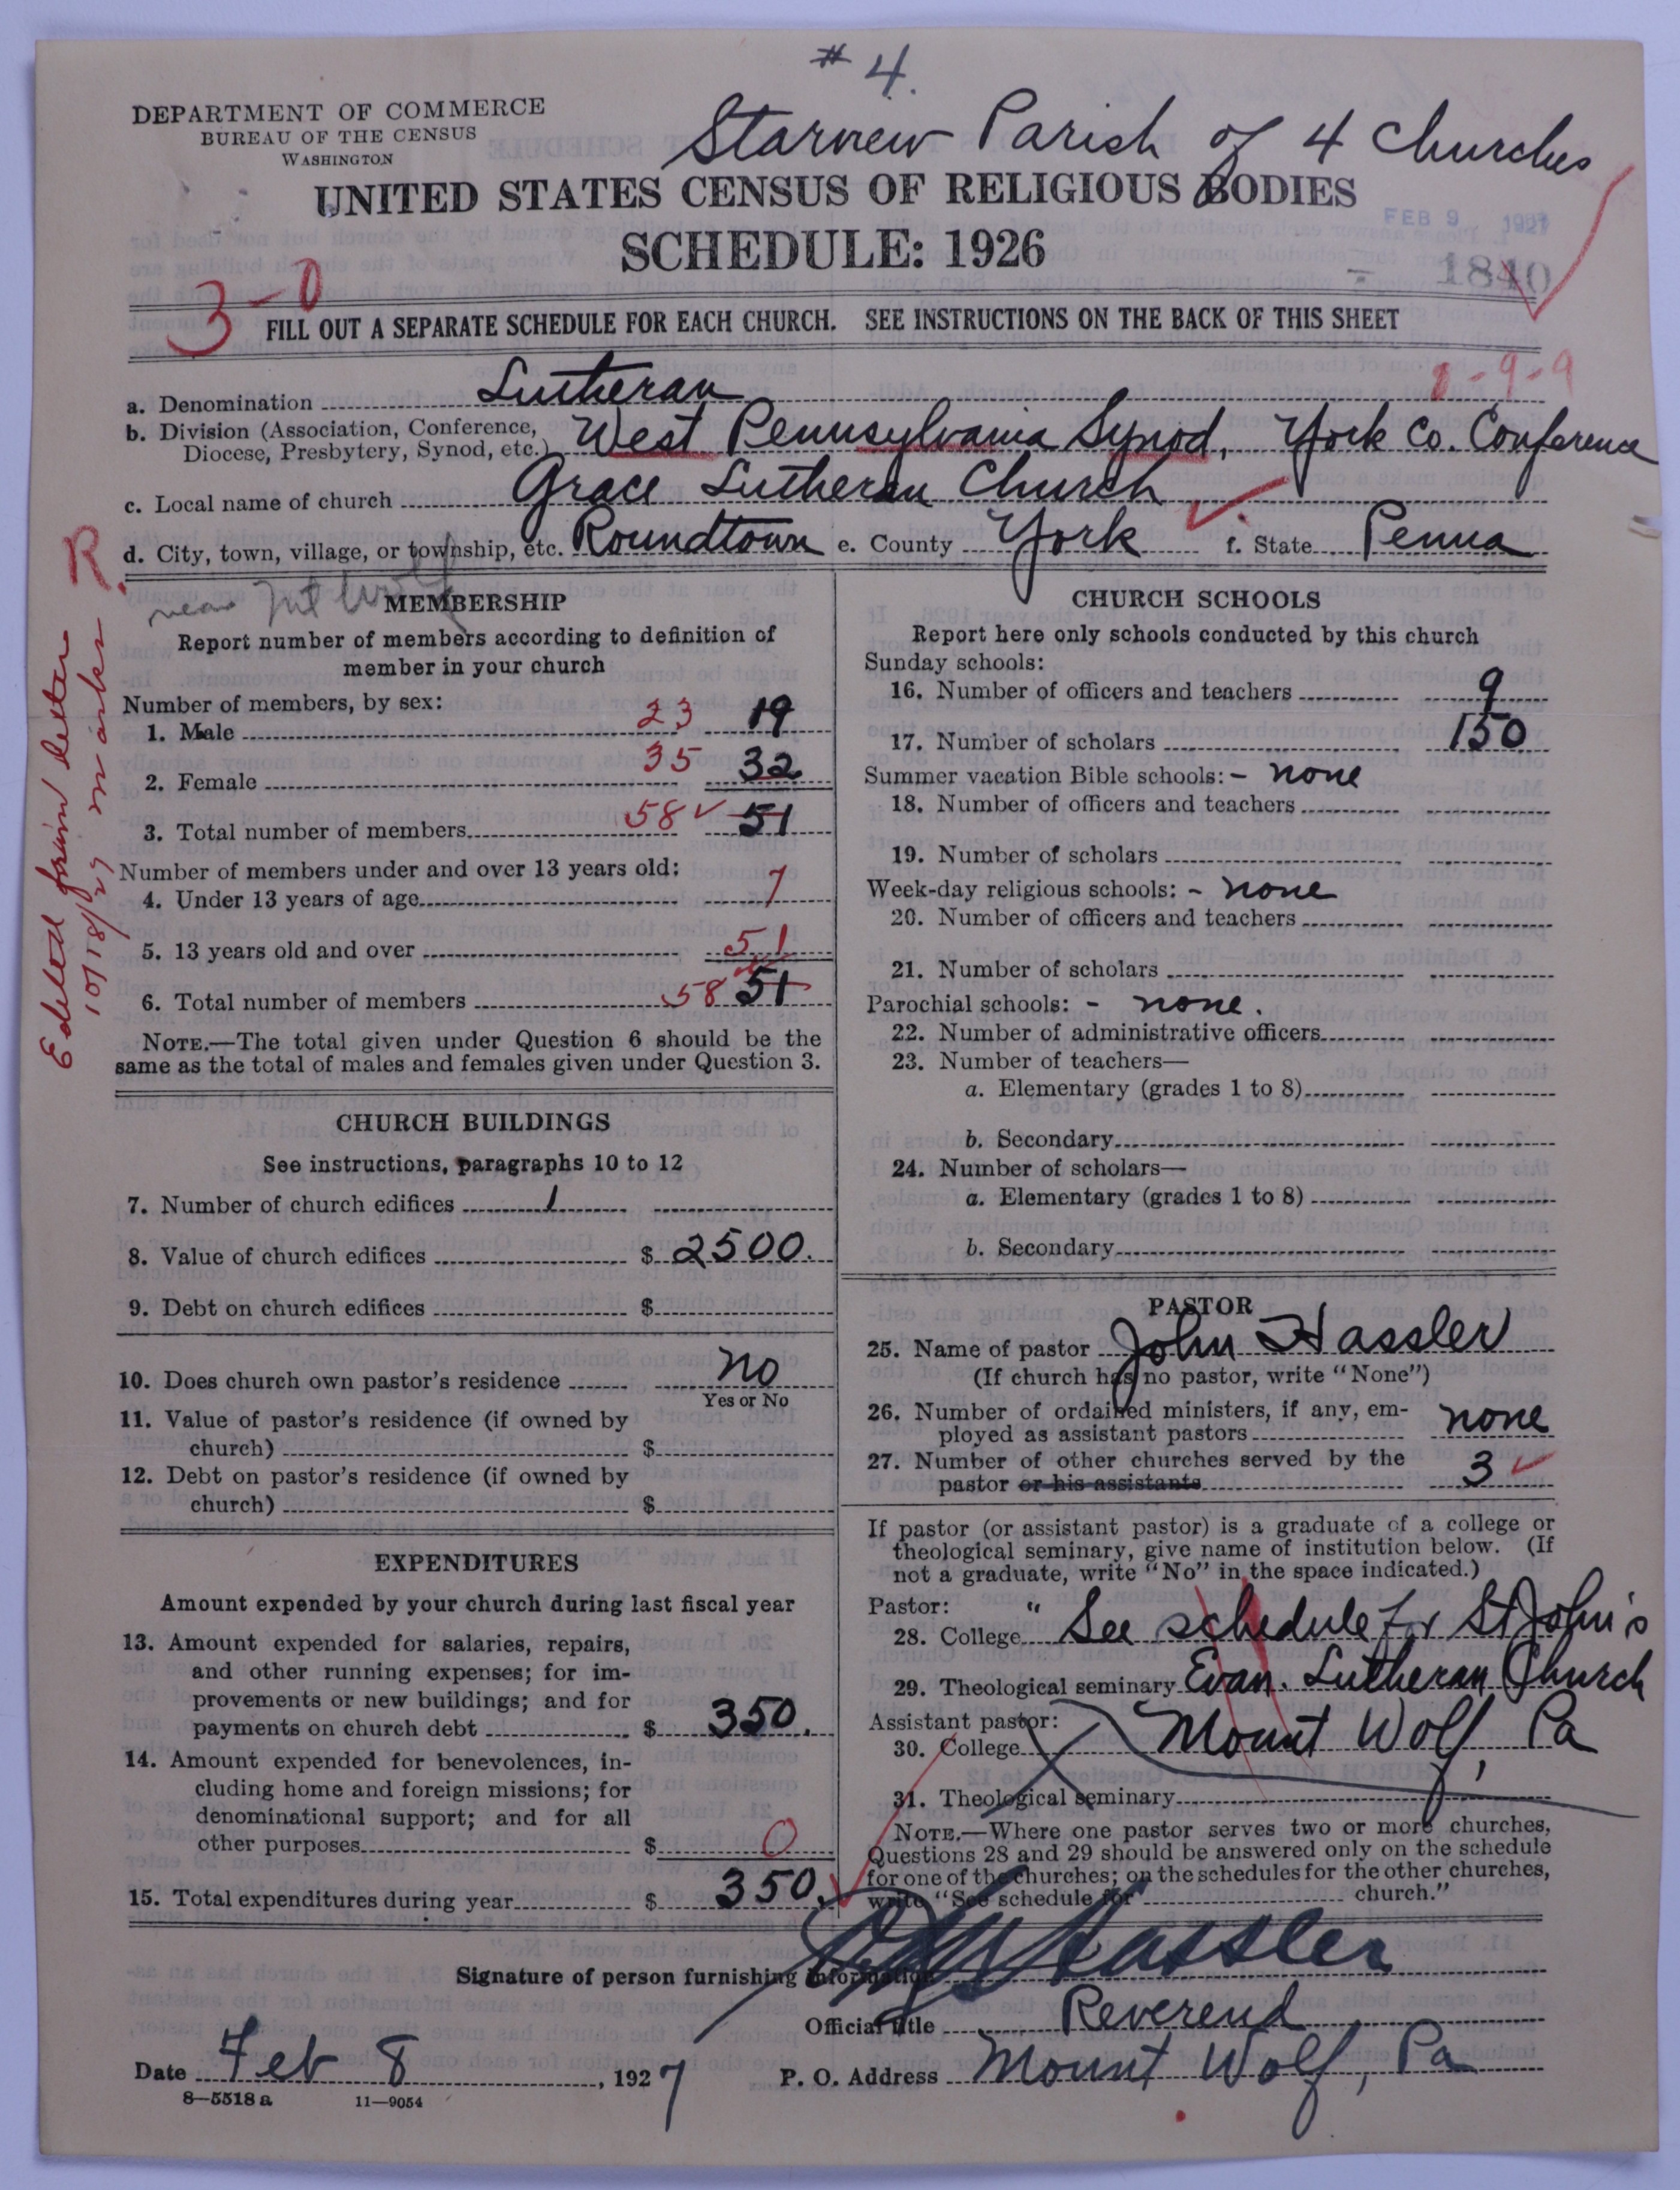 # 4.
DEPARTMENT OF COMMERCE
BUREAU OF THE CENSUS
WASHINGTON
Starview Parish of 4 Churches
UNITED STATES CENSUS OF RELIGIOUS BODIES
FEB 9 1927
SCHEDULE: 1926
1840
3-0
FILL OUT A SEPARATE SCHEDULE FOR EACH CHURCH. SEE INSTRUCTIONS ON THE BACK OF THIS SHEET
0-9-9
a. Denomination Lutheran
b. Division (Association, Conference, Diocese, Presbytery, Synod, etc.) West Pennsylvania Synod, York Co. Conference
c. Local name of church Grace Lutheran Church
d. City, town, village, or township, etc. Roundtown e. County York f. State Penna
near Mt Wolf
R.
Edited from letter
10/18/27
MEMBERSHIP
Report number of members according to definition of
member in your church
Number of members, by sex:
1. Male 23 19
2. Female 35 32
3. Total number of members 58 51
Number of members under and over 13 years old:
4. Under 13 years of age 7
5. 13 years old and over 51
6. Total number of members 58 51
NOTE.—The total given under Question 6 should be the
same as the total of males and females given under Question 3.
CHURCH BUILDINGS
See instructions, paragraphs 10 to 12
7. Number of church edifices 1
8. Value of church edifices $ 2500.
9. Debt on church edifices $
10. Does church own pastor's residence no
Yes or No
11. Value of pastor's residence (if owned by
church) $
12. Debt on pastor's residence (if owned by
church) $
EXPENDITURES
Amount expended by your church during last fiscal year
13. Amount expended for salaries, repairs,
and other running expenses; for im-
provements or new buildings; and for
payments on church debt $ 350.
14. Amount expended for benevolences, in-
cluding home and foreign missions; for
denominational support; and for all
other purposes $ 0
15. Total expenditures during year $ 350.
CHURCH SCHOOLS
Report here only schools conducted by this church
Sunday schools:
16. Number of officers and teachers 9
17. Number of scholars 150
Summer vacation Bible schools: - none
18. Number of officers and teachers
19. Number of scholars
Week-day religious schools: - none
20. Number of officers and teachers
21. Number of scholars
Parochial schools: - none.
22. Number of administrative officers
23. Number of teachers—
a. Elementary (grades 1 to 8)
b. Secondary
24. Number of scholars—
a. Elementary (grades 1 to 8)
b. Secondary
PASTOR
25. Name of pastor John Hassler
(If church has no pastor, write "None")
26. Number of ordained ministers, if any, em-
ployed as assistant pastors none
27. Number of other churches served by the
pastor or his assistants 3
If pastor (or assistant pastor) is a graduate of a college or
theological seminary, give name of institution below. (If
not a graduate, write "No" in the space indicated.)
Pastor: "
28. College See schedule for St John's
29. Theological seminary Evan. Lutheran Church
Assistant pastor:
30. College Mount Wolf, Pa
31. Theological seminary
NOTE.—Where one pastor serves two or more churches,
Questions 28 and 29 should be answered only on the schedule
for one of the churches; on the schedules for the other churches,
write "See schedule for church."
Signature of person furnishing information Hassler
Official title Reverend
Date Feb 8, 1927 P. O. Address Mount Wolf, Pa
8—5518 a 11—9054